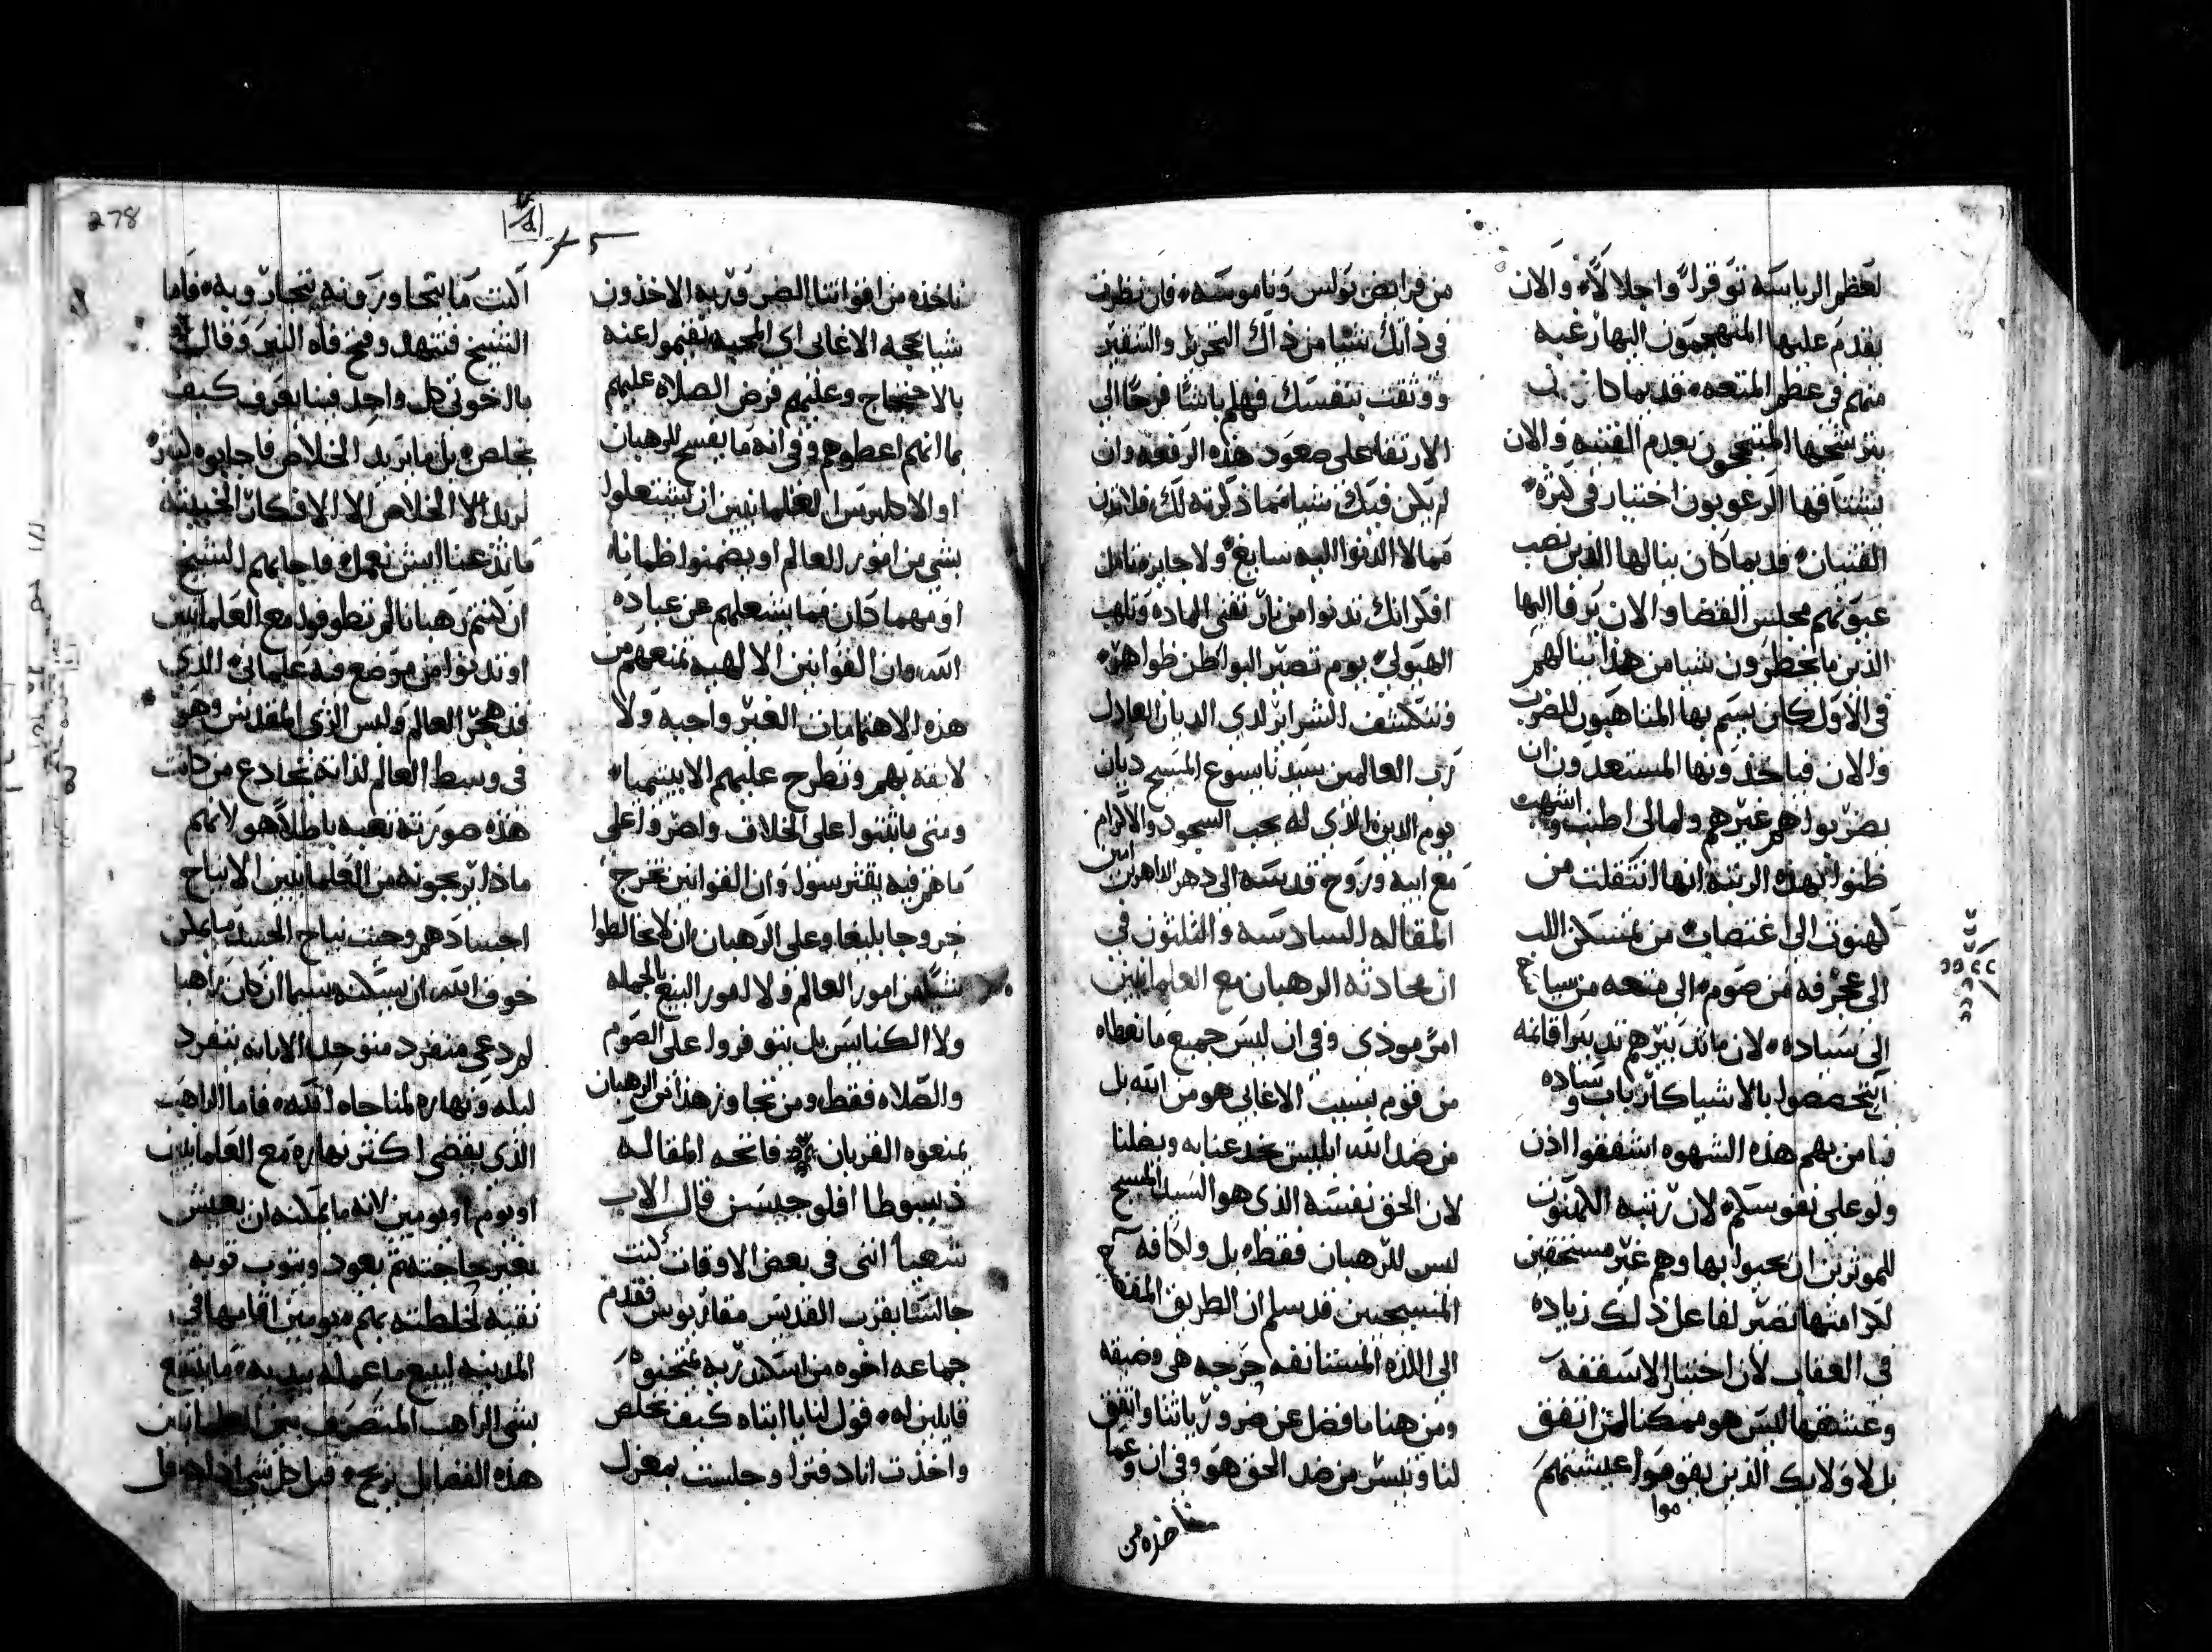 لعظم الرياسه توقرا واجلالا والان
يقدم عليها المتهجمون اليها رغبه
منهم في عظم المتعه قديما كان
يترشحها المتنجحون بعدم القنيه والان
يشتاقها الرغوبون اختيار في كثرة
القنيان قديما كان ينالها الذين نصب
عيونهم مجلس القضا والان يرقا اليها
الذين ما يخطرون شيا من هذا ببالهم
في الاول كان يسم بها المتاهبون للضرب
والان فياخذونها المستعدون ان
يضربوا هم غيرهم ولمالي اطنب واشهب
ظنوا بهذه الرتبه انها انتقلت من
كهنوت الي اغتصاب من تمسكن الي
الي عجرفه من صوم الي متعه من سياح
الي سياده لان ما تدبيرهم تدبير اقامه
اتخصصوا بالاشيا كارباب سياده و
فيا من بهم هذه الشهوه اشفقوا اذن
ولو علي نفوسكم لان رتبه الكهنوت
للموثرين ان يحبوا بها وهم غير مستحقين
لكرامتها تصير لفاعل ذلك زياده
في العقاب لان اختيار الاسقفه
وعشقها ليس هو ممكنا لمن اتفق
بل لاولايك الذين يقوموا عيشتهم
موا
من فرايض بولس وناموسه فان نظرت
في ذاتك شيا من ذاك التحرير والتنقير
ووثقت بنفسك فهلم باشا فرحا الي
الارتقا علي صعود هذه الرفعه وان
لم يكن فيك شيا مما ذكرته لك فلا تدن
مما لا الدنوا اليه سايغ ولا جايز متامل
افكر انك تدنوا من نار تفني الماده وتلهب
الهيولي يوم تصير البواطن ظواهر
وتنكشف السراير لدي الديان العادل
رب العالمين سيدنا يسوع المسيح ديان
يوم الدين الذي له يجب السجود والاكرام
مع ابيه وروح قدسه الي دهر الداهرين امين
المقاله السادسه والثلثون في
ان محادثه الرهبان مع العلمانيين
امر موذي وفي ان ليس جميع ما نعطاه
من قوم بسبب الاغابي هو من الله بل
من ضد الله ابليس يخدعنا به ويضلنا
لان الحق نفسه الذي هو السيد المسيح
ليس للرهبان فقط بل ولكافه
المسيحيين قد سلم ان الطريق
الي اللذه المستانفه حرجه هي وضيقه
ومن هنا ما فضل عن ضرورياتنا واتفق
لنا وتيسر من ضد الحق هو وفي ان وعما
ناخذه من
ناخذه من افواتنا الضروريه الاخذون
شيا بحجه الاغابي اي المحبه يقيموا عنه
بالاحتجاج وعليهم فرض الصلاه عليهم
بما انهم اعطوهم وفي انه ما يفسح للرهبان
او الاكليرس العلمانيين ان يشتغلوا
بشي من امور العالم او يضمنوا ضمانه
او مهما كان مما يشغلهم عن عباده
الله وان القوانين الالهيه تمنعهم من
هذه الاهتمامات الغير واجبه ولا
لايقه بهم وتطرح عليهم الابيتيميا
ومتي ما ثبتوا علي الخلاف واصروا علي
ما هم فيه يقترسوا وان القوانين تحرج
حروجا بليغا وعلي الرهبان ان لا يخالطوا
شيا من امور العالم ولا امور البيع بالجمله
ولا الكنايس بل يتوفروا علي الصوم
والصلاه فقط ومن تجاوز هذا من الرهبان
يمنعوه القربان فاتحه المقاله
ذيسوطا افلوجيسن قال الاب
شعيا انني في بعض الاوقات كنت
جالسا بقرب القديس مقاريوس فقدم
جماعه اخوه من اسكندريه يمتحنوه
قايلين له قول لنا يا ابتاه كيف نخلص
واخذت انا دفترا وجلست بمعزل
278
اكتب ما يتحاورونه يتحاروبه فاما
الشيخ فتنهد وفتح فاه النير وقال
يا اخوتي كل واحد فينا يعرف كيف
يخلص بل ما نريد الخلاص فاجابوه
نريد الا الخلاص الا الافكار الخبيثه
ما تدعنا ايش نعمل فاجابهم الشيخ
ان كنتم رهبانا لم تطوفوا مع العلمانيين
او تدنوا من موضع فيه علماني الذي
قد هجر العالم ولبس الزي المقدس وهو
في وسط العالم لذاته يخادع من كانت
هذه صورته تعبه باطلا هو لانهم
ماذا يربحونه من العلمانيين الا نياح
اجسادهم وحيث نياح الجسد ما يمكن
خوف الله ان يسكنه سيما ان كان راهبا
لم دعي منفرد متوحد الا بانه ينفرد
ليله ونهاره لمناجاه الله فاما الراهب
الذي يقضي اكثر نهاره مع العلمانيين
او يوم او يومين لانه ما يمكنه ان يعيش
بغير حاجته ثم يعود ويتوب توبه
نقيه لخلطته بهم يومين اقامها في
المدينه ليبيع ما عمله بيديه ما ينتفع
بشي الراهب المتصرف بين العلمانيين
هذه الفضايل يربح قبل كل شي